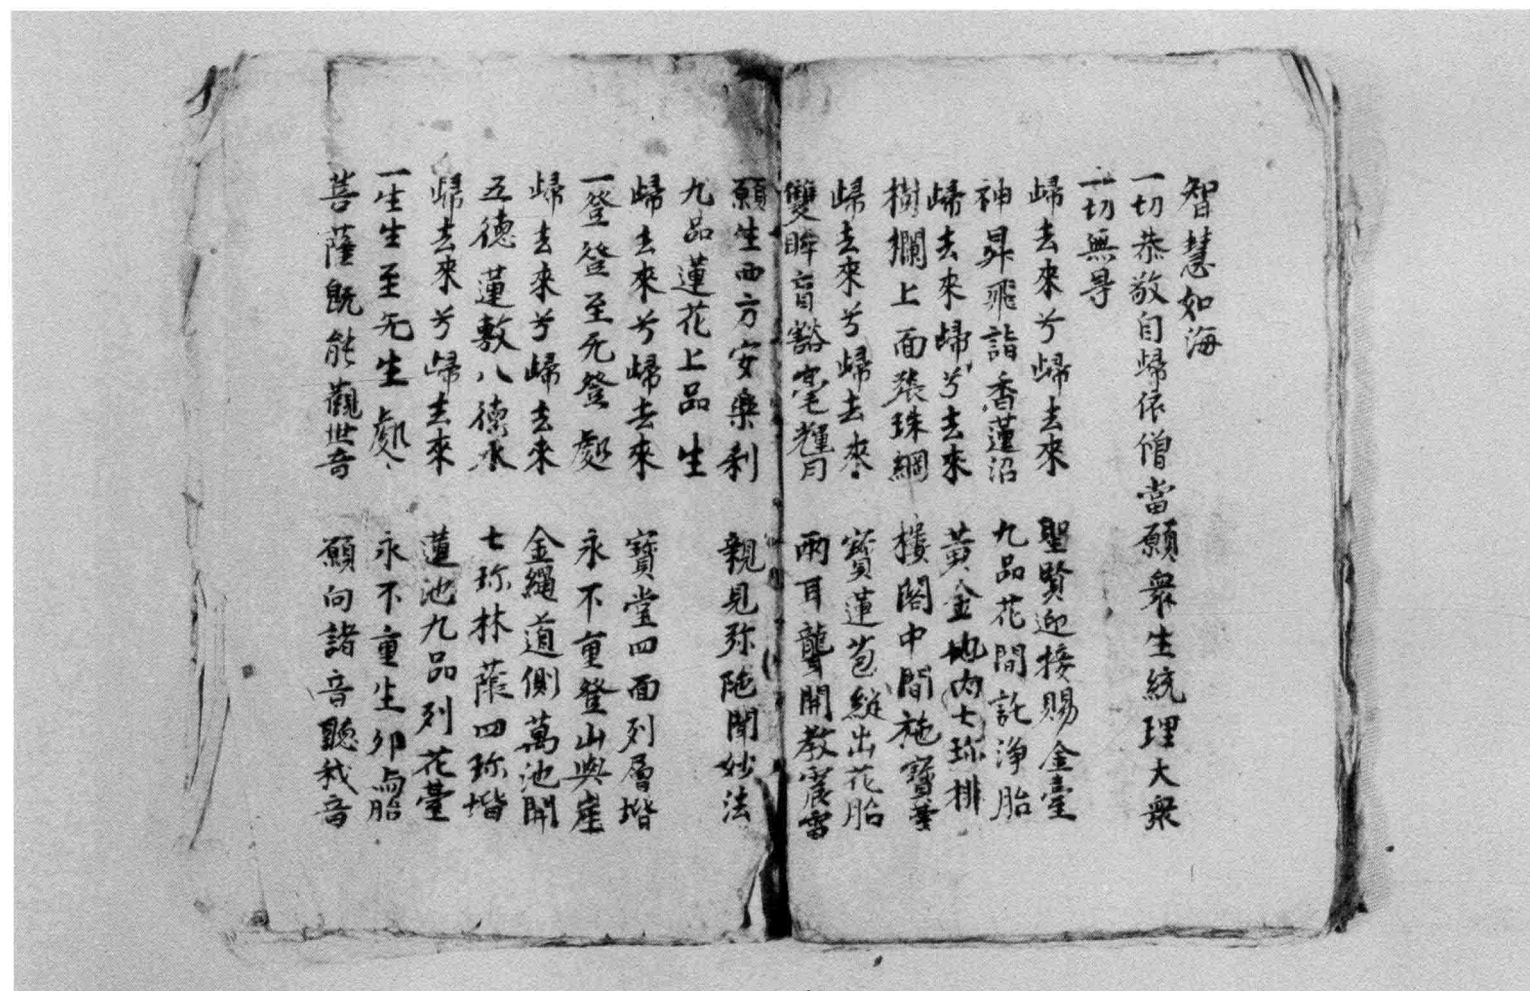 智慧如海
一切恭敬自歸依僧當願衆生統理大衆
一切無㝵
歸去來兮歸去來 聖賢迎接賜金臺
神昇飛詣香蓮沼 九品花間託淨胎
歸去來歸兮去來 黃金地內七珎排
樹攔上面張珠網 樓閣中間施寶臺
歸去來兮歸去來 寶蓮苞縫出花胎
雙眸盲豁毫輝月 兩耳聾開教震雷
願生西方安樂刹 親見弥陁聞妙法
九品蓮花上品生
歸去來兮歸去來 寶堂四面列層堦
一登登至无登處 永不重登山與崖
歸去來兮歸去來 金繩道側萬池開
五德蓮敷八德水 七珎林蔭四珎堦
歸去來兮歸去來 蓮池九品列花臺
一生生至无生處 永不重生卵与胎
菩薩既能觀世音 願向諸音聽我音